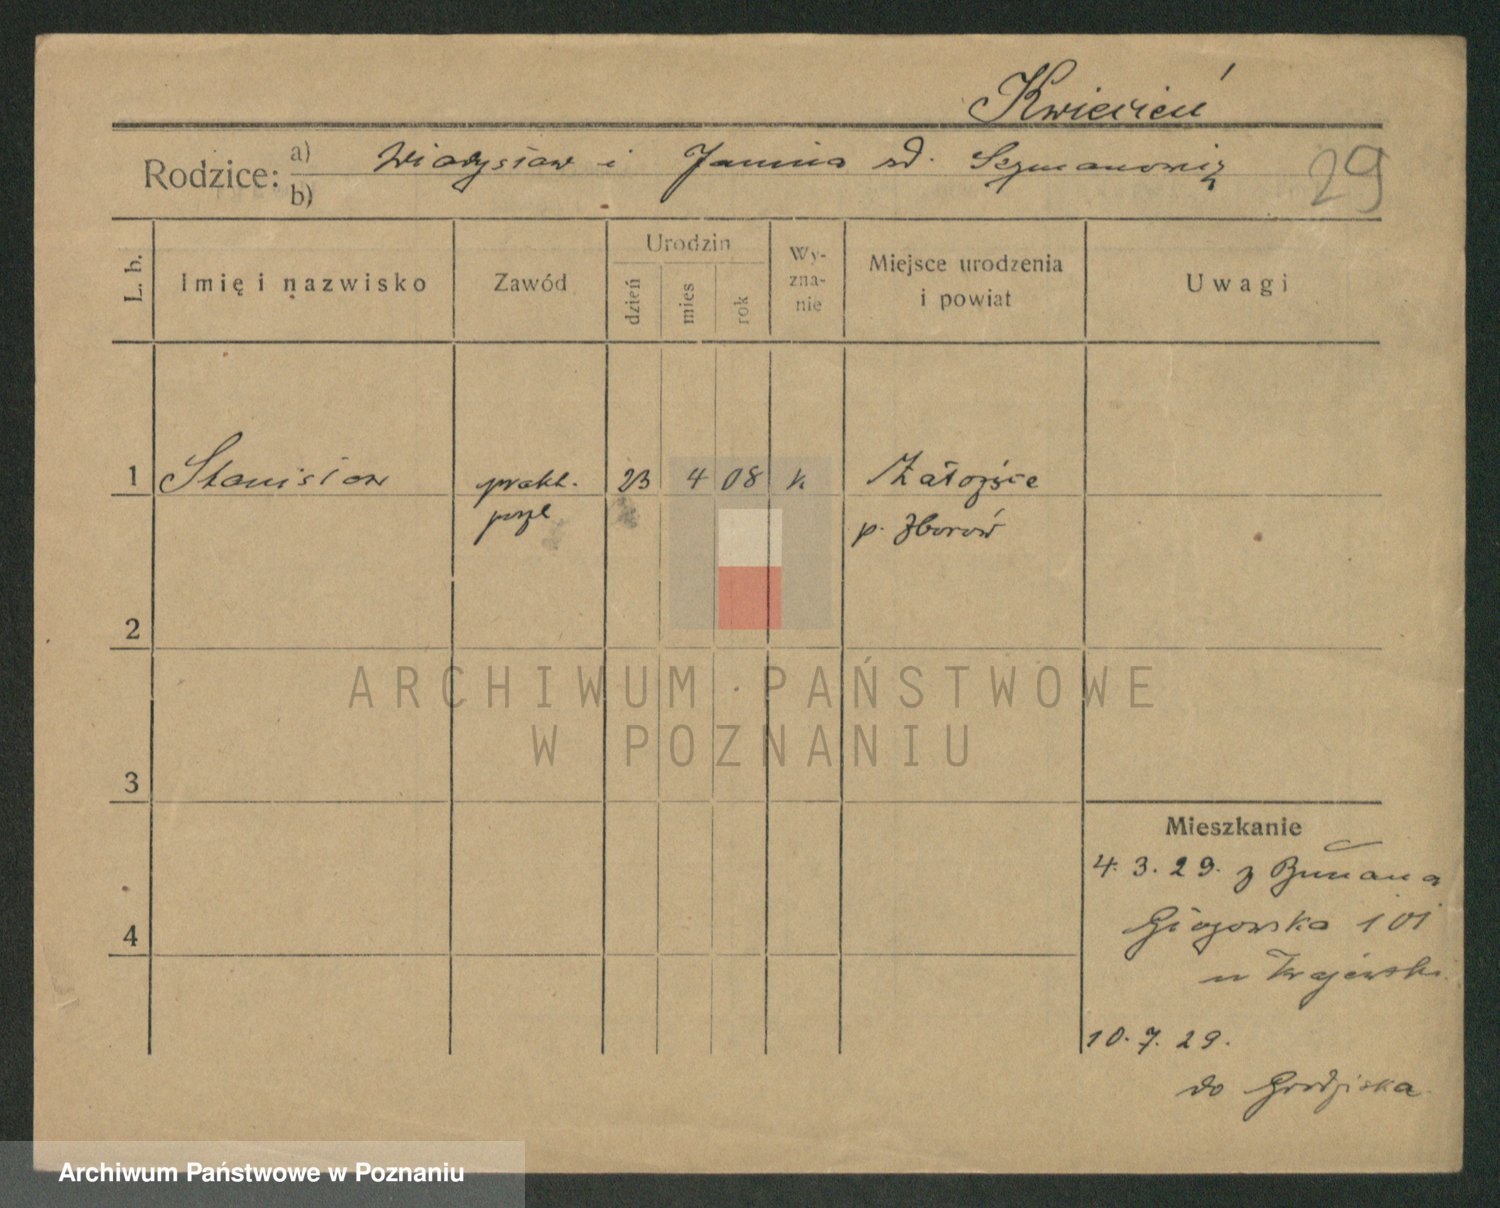 Kwiecień
Rodzice: a) Władysław i Janina rd. Szymanowicz
b)
29
L. b. Imię i nazwisko Zawód Urodzin dzień mies rok Wy-zna-nie Miejsce urodzenia i powiat Uwagi
1 Stanisław prakt. 23 4 08 k Załoźce
p. Zborów
2
ARCHIWUM PAŃSTWOWE
W POZNANIU
3
Mieszkanie
4. 3. 29. z
Głogowska 101
4
u Krajewski
10. 7. 29.
do Grodziska
Archiwum Państwowe w Poznaniu